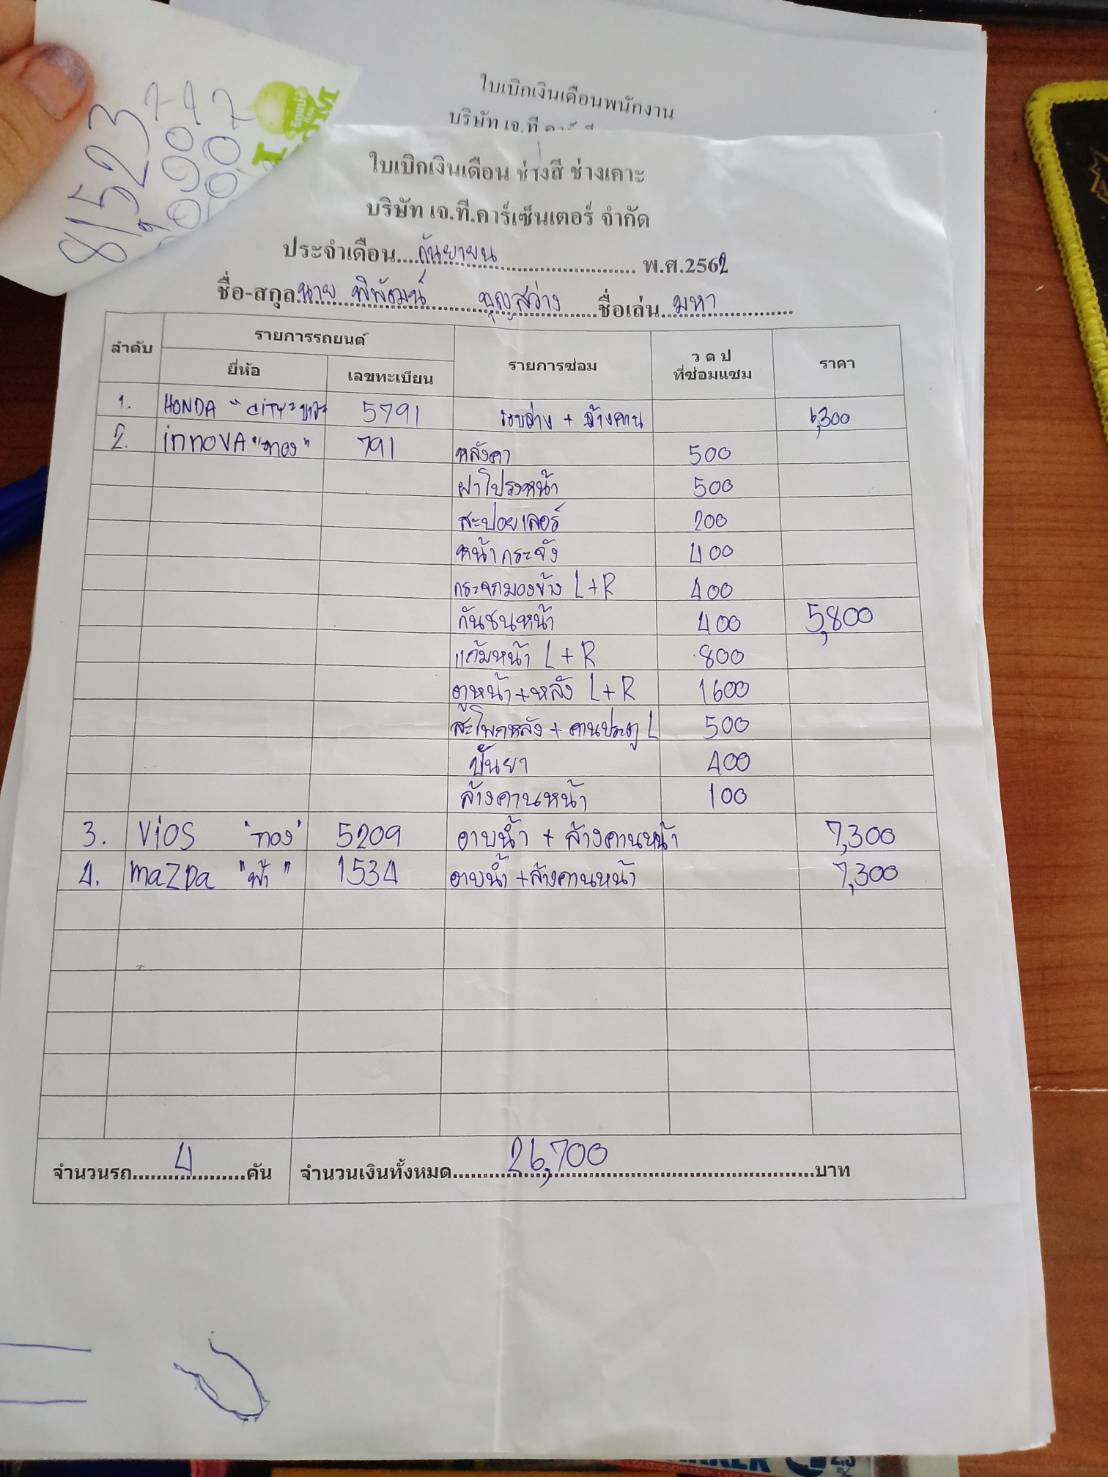 81523
ใบเบิกเงินเดือนพนักงาน
บริษัท เจ.ที
ใบเบิกเงินเดือน ช่างสี ช่างเคาะ
บริษัท เจ.ที.คาร์เซ็นเตอร์ จำกัด
ประจำเดือน....กันยายน.... พ.ศ.2562
ชื่อ-สกุล นาย พิพัฒน์ บุญสว่าง ชื่อเล่น มหา
ลำดับ รายการรถยนต์ รายการซ่อม ว ด ป ที่ซ่อมแซม ราคา
ยี่ห้อ เลขทะเบียน
1. HONDA "CITY" 5791 รอบล่าง + ล้างคาน 6,300
2. innoVA "ทอง" 791 หลังคา 500
ฝาโปรงหน้า 500
สะปอยเลอร์ 200
หน้ากระจัง 400
กระจกมองข้าง L+R 400
กันชนหน้า 400 5,800
แก้มหน้า L+R 800
ตูหน้า+หลัง L+R 1600
สะโพกหลัง + คานประตู L 500
ปั้นยา 400
ล้างคานหน้า 100
3. ViOS "ทอง" 5209 อาบน้ำ + ล้างคานหน้า 7,300
4. maZDa "ฟ้า" 1534 อาบน้ำ + ล้างคานหน้า 7,300
จำนวนรถ....4....คัน จำนวนเงินทั้งหมด....26,700....บาท